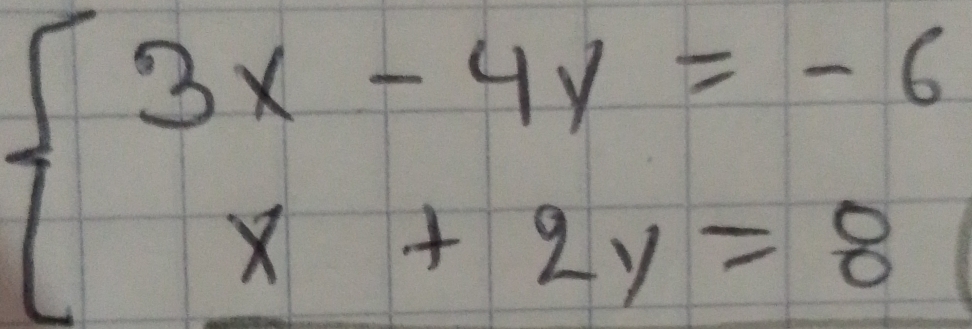 3x - 4y = - 6
x + 2y = 8